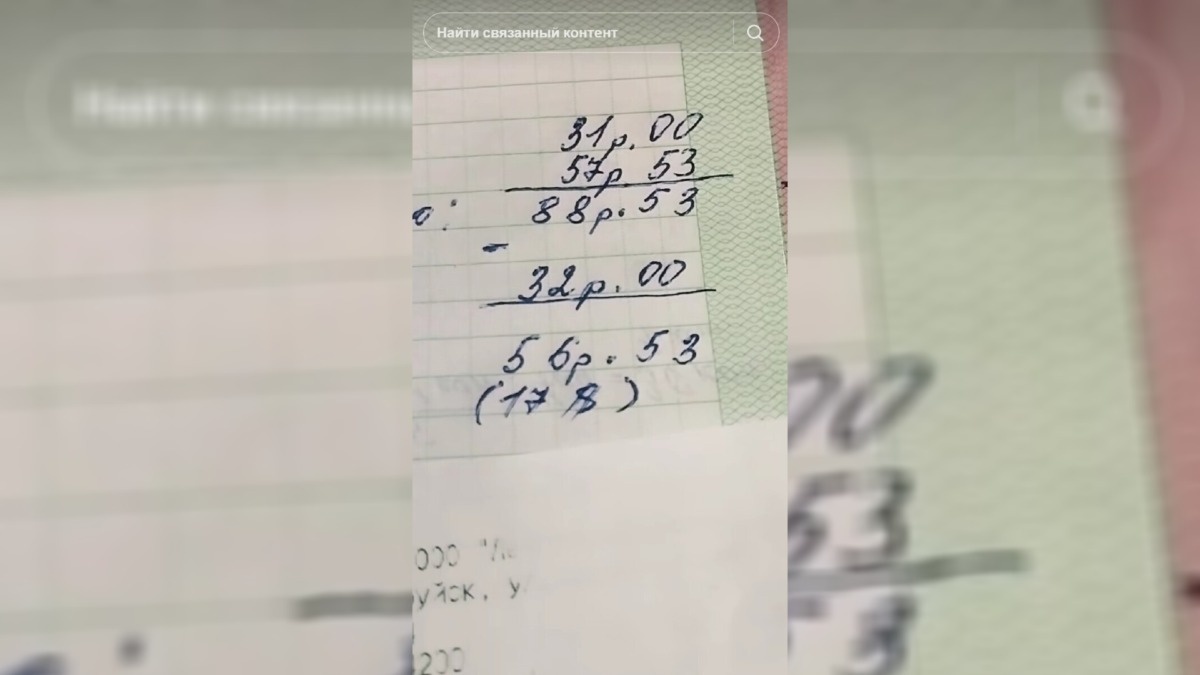 Найти связанный контент
31р.00
57р.53
о: 88р.53
-
32р.00
56р.53
(17 $)
ООО "Ле
руйск, у
200